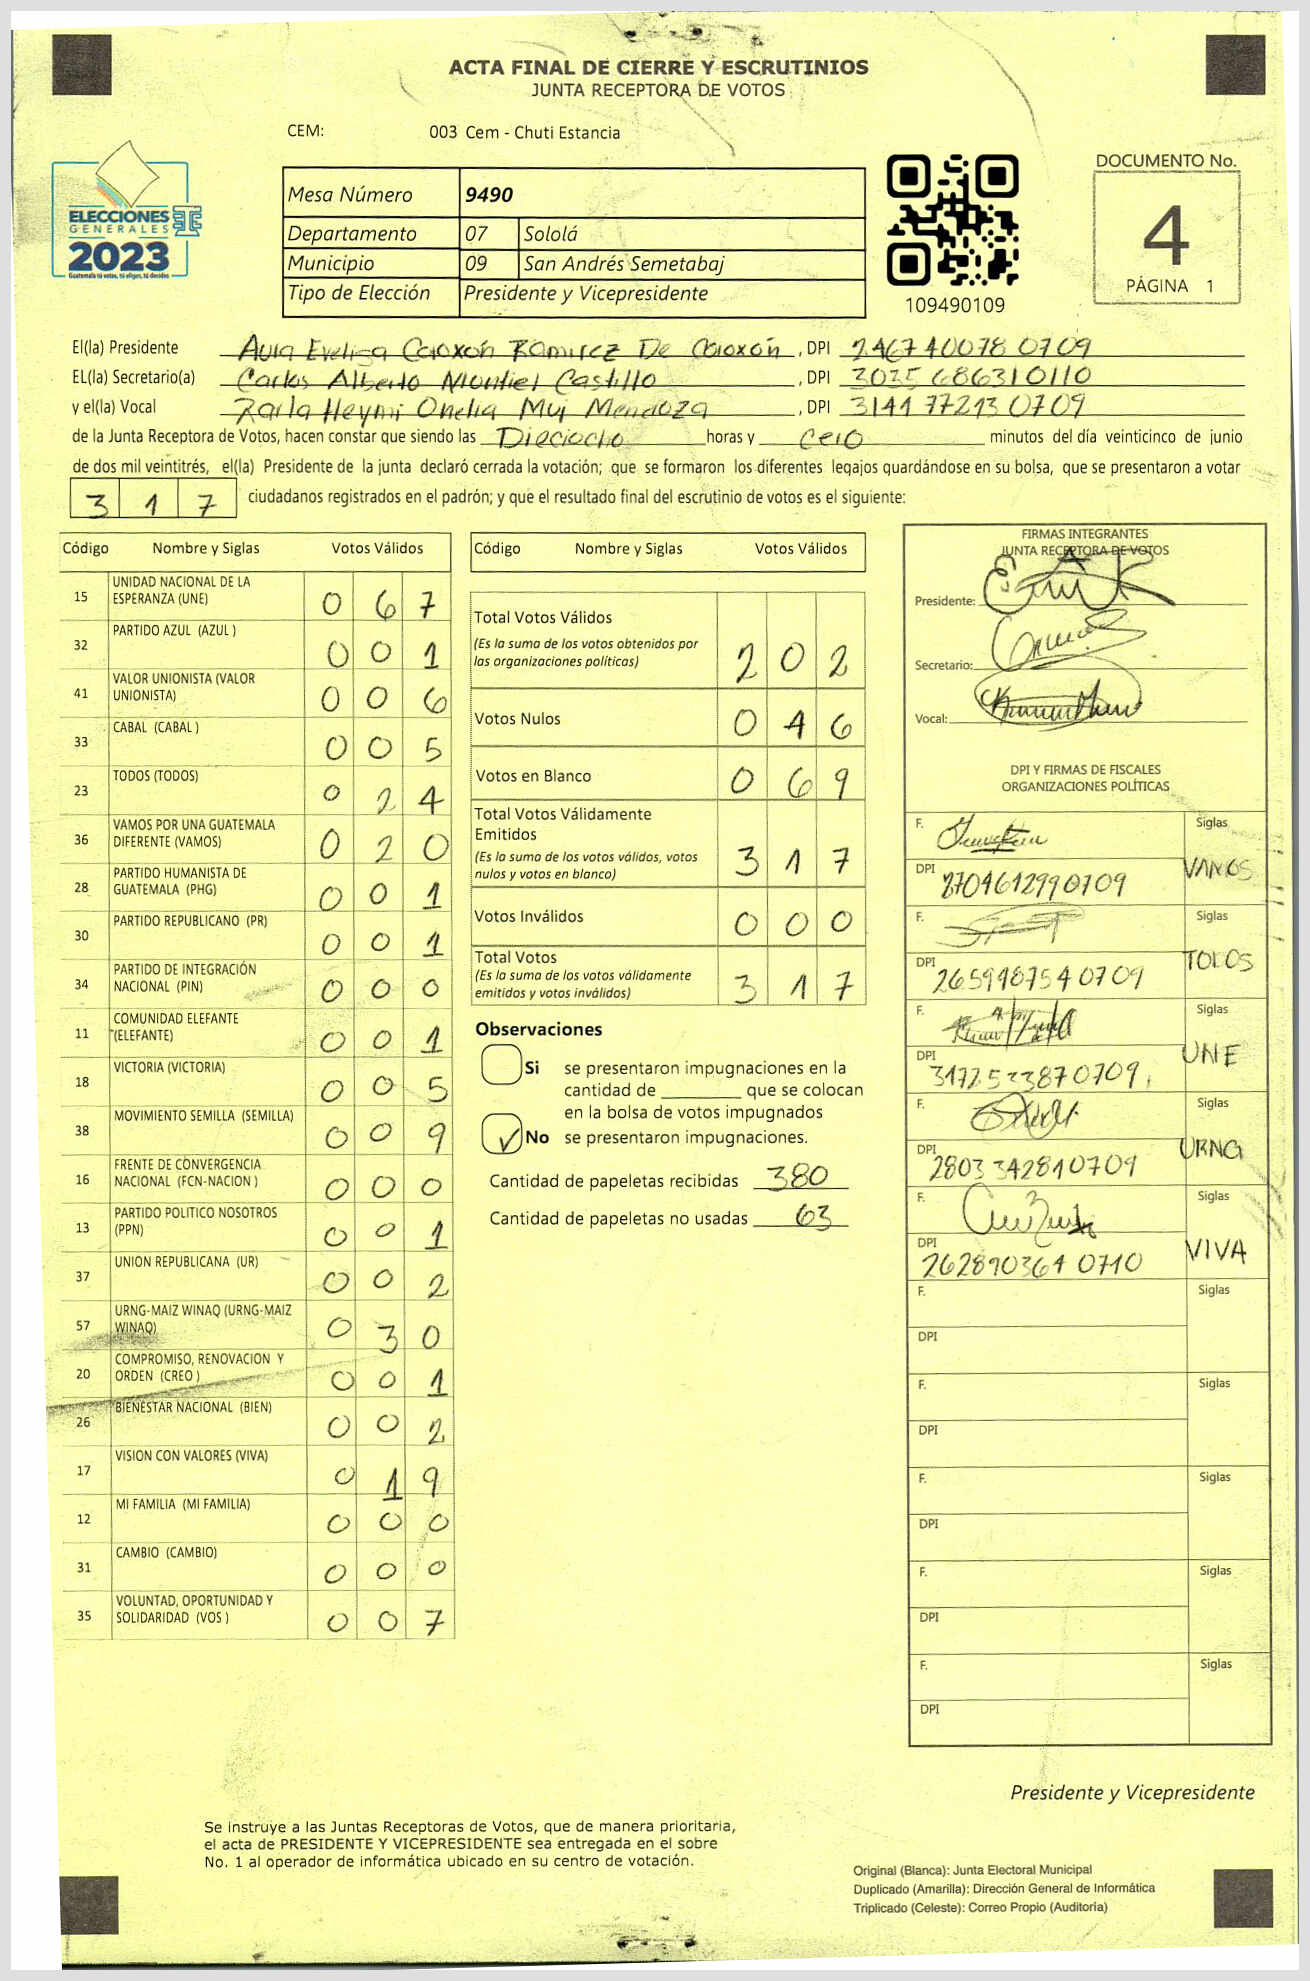 ACTA FINAL DE CIERRE Y ESCRUTINIOS
JUNTA RECEPTORA DE VOTOS
CEM: 003 Cem - Chuti Estancia
ELECCIONES
GENERALES
2023
Guatemala tú votas, tú eliges, tú decides
Mesa Número 9490
Departamento 07 Sololá
Municipio 09 San Andrés Semetabaj
Tipo de Elección Presidente y Vicepresidente
109490109
DOCUMENTO No.
4
PÁGINA 1
El(la) Presidente Aura Evelisa Coroxón Ramirez De Coroxón, DPI 2467 40078 0709
EL(la) Secretario(a) Carlos Alberto Montiel Castillo, DPI 3035 68631 0110
y el(la) Vocal Karla Heymi Onelia Muj Mendoza, DPI 3141 77213 0709
de la Junta Receptora de Votos, hacen constar que siendo las Dieciocho horas y cero minutos del día veinticinco de junio
de dos mil veintitrés, el(la) Presidente de la junta declaró cerrada la votación; que se formaron los diferentes legajos guardándose en su bolsa, que se presentaron a votar
3 1 7 ciudadanos registrados en el padrón; y que el resultado final del escrutinio de votos es el siguiente:
Código Nombre y Siglas Votos Válidos
15 UNIDAD NACIONAL DE LA ESPERANZA (UNE) 0 6 7
32 PARTIDO AZUL (AZUL ) 0 0 1
41 VALOR UNIONISTA (VALOR UNIONISTA) 0 0 6
33 CABAL (CABAL ) 0 0 5
23 TODOS (TODOS) 0 2 4
36 VAMOS POR UNA GUATEMALA DIFERENTE (VAMOS) 0 2 0
28 PARTIDO HUMANISTA DE GUATEMALA (PHG) 0 0 1
30 PARTIDO REPUBLICANO (PR) 0 0 1
34 PARTIDO DE INTEGRACIÓN NACIONAL (PIN) 0 0 0
11 COMUNIDAD ELEFANTE (ELEFANTE) 0 0 1
18 VICTORIA (VICTORIA) 0 0 5
38 MOVIMIENTO SEMILLA (SEMILLA) 0 0 9
16 FRENTE DE CONVERGENCIA NACIONAL (FCN-NACION ) 0 0 0
13 PARTIDO POLITICO NOSOTROS (PPN) 0 0 1
37 UNION REPUBLICANA (UR) 0 0 2
57 URNG-MAIZ WINAQ (URNG-MAIZ WINAQ) 0 3 0
20 COMPROMISO, RENOVACION Y ORDEN (CREO ) 0 0 1
26 BIENESTAR NACIONAL (BIEN) 0 0 2
17 VISION CON VALORES (VIVA) 0 1 9
12 MI FAMILIA (MI FAMILIA) 0 0 0
31 CAMBIO (CAMBIO) 0 0 0
35 VOLUNTAD, OPORTUNIDAD Y SOLIDARIDAD (VOS ) 0 0 7
Código Nombre y Siglas Votos Válidos
Total Votos Válidos 2 0 2
(Es la suma de los votos obtenidos por
las organizaciones políticas)
Votos Nulos 0 4 6
Votos en Blanco 0 6 9
Total Votos Válidamente
Emitidos 3 1 7
(Es la suma de los votos válidos, votos
nulos y votos en blanco)
Votos Inválidos 0 0 0
Total Votos 3 1 7
(Es la suma de los votos válidamente
emitidos y votos inválidos)
Observaciones
Si se presentaron impugnaciones en la
cantidad de ________ que se colocan
en la bolsa de votos impugnados
No se presentaron impugnaciones.
Cantidad de papeletas recibidas 380
Cantidad de papeletas no usadas 63
FIRMAS INTEGRANTES
JUNTA RECEPTORA DE VOTOS
Presidente:
Secretario:
Vocal:
DPI Y FIRMAS DE FISCALES
ORGANIZACIONES POLÍTICAS
F. Siglas
DPI 2704612990709 VAMOS
F. Siglas
DPI 2659487540709 TODOS
F. Siglas
DPI 3172533870709 UNE
F. Siglas
DPI 2803342810709 URNG
F. Siglas
DPI 2628903640710 VIVA
F. Siglas
DPI
F. Siglas
DPI
F. Siglas
DPI
F. Siglas
DPI
F. Siglas
DPI
Presidente y Vicepresidente
Se instruye a las Juntas Receptoras de Votos, que de manera prioritaria,
el acta de PRESIDENTE Y VICEPRESIDENTE sea entregada en el sobre
No. 1 al operador de informática ubicado en su centro de votación.
Original (Blanca): Junta Electoral Municipal
Duplicado (Amarilla): Dirección General de Informática
Triplicado (Celeste): Correo Propio (Auditoria)